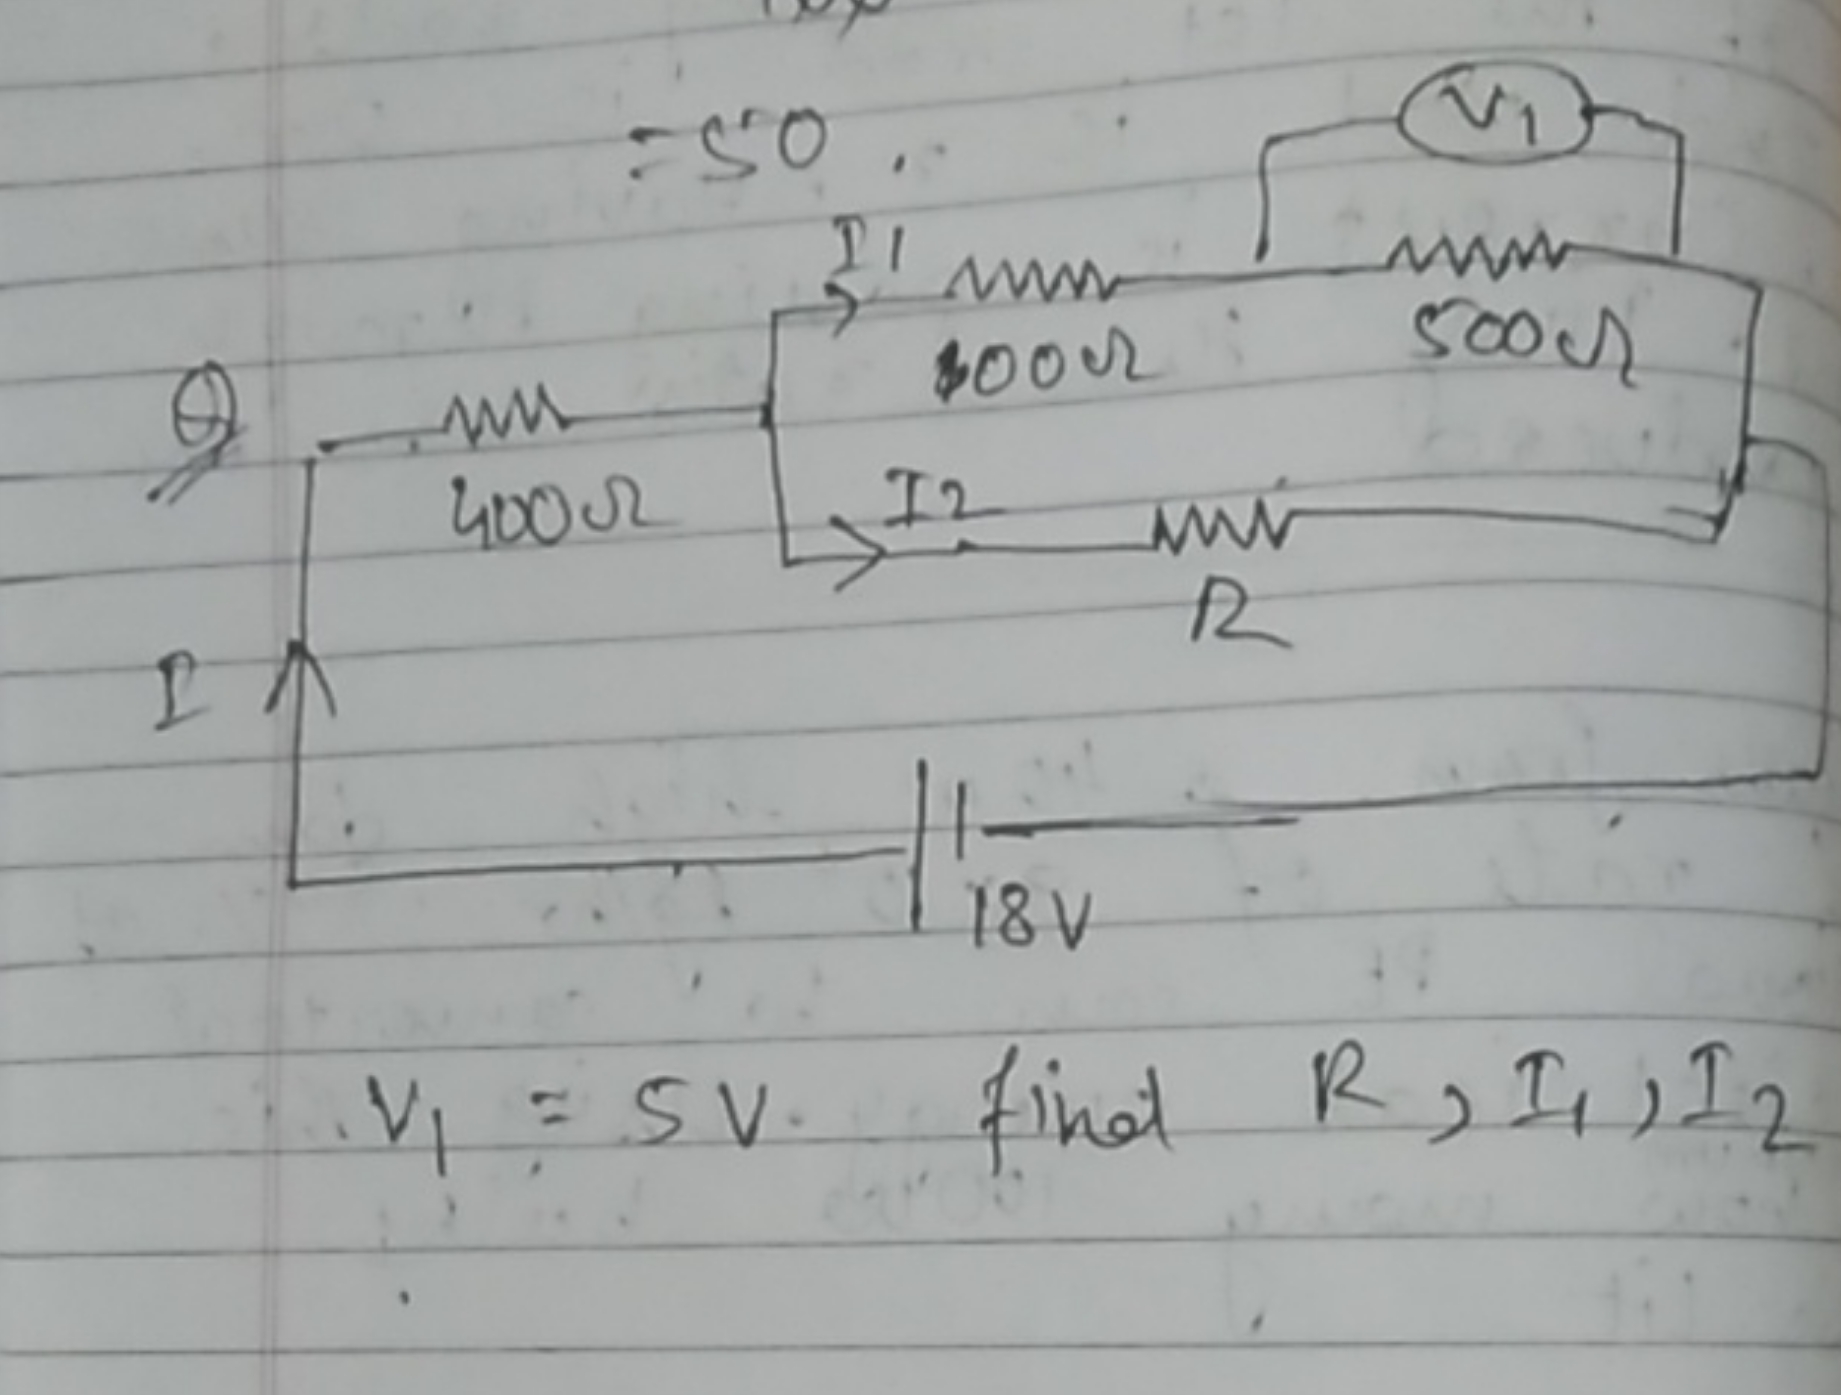 = 50.
V1
I1
100Ω
500Ω
Q
400Ω
I2
R
I
18V
V1 = 5V. find R, I1, I2